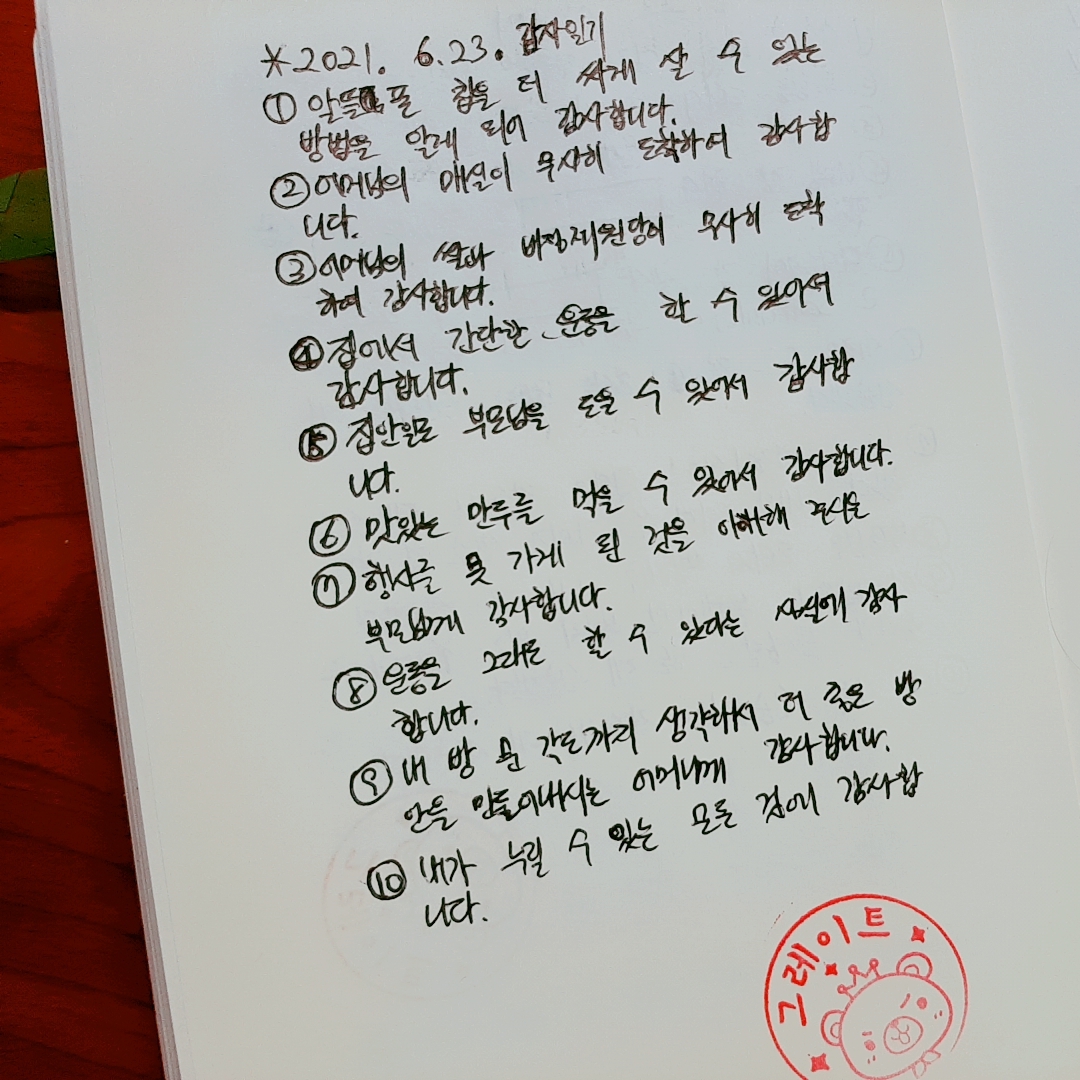 *2021. 6.23. 감사일기
① 알뜰폰 칩을 더 싸게 살 수 있는
방법을 알게 되어 감사합니다.
② 어머님의 매실이 무사히 도착하여 감사합
니다.
③ 어머님의 쌀과 이 무사히 도착
하여 감사합니다.
④ 집에서 간단한 운동을 할 수 있어서
감사합니다.
⑤ 집안일로 부모님을 도울 수 있어서 감사합
니다.
⑥ 맛있는 만두를 먹을 수 있어서 감사합니다.
⑦ 행사를 못 가게 된 것을 이해해 주시는
부모님께 감사합니다.
⑧ 운동을 그래도 할 수 있다는 사실에 감사
합니다.
⑨ 내 방 문 각도까지 생각해서 더 좋은 방
안을 만들어내시는 어머니께 감사합니다.
⑩ 내가 누릴 수 있는 모든 것에 감사합
니다.
그레이트